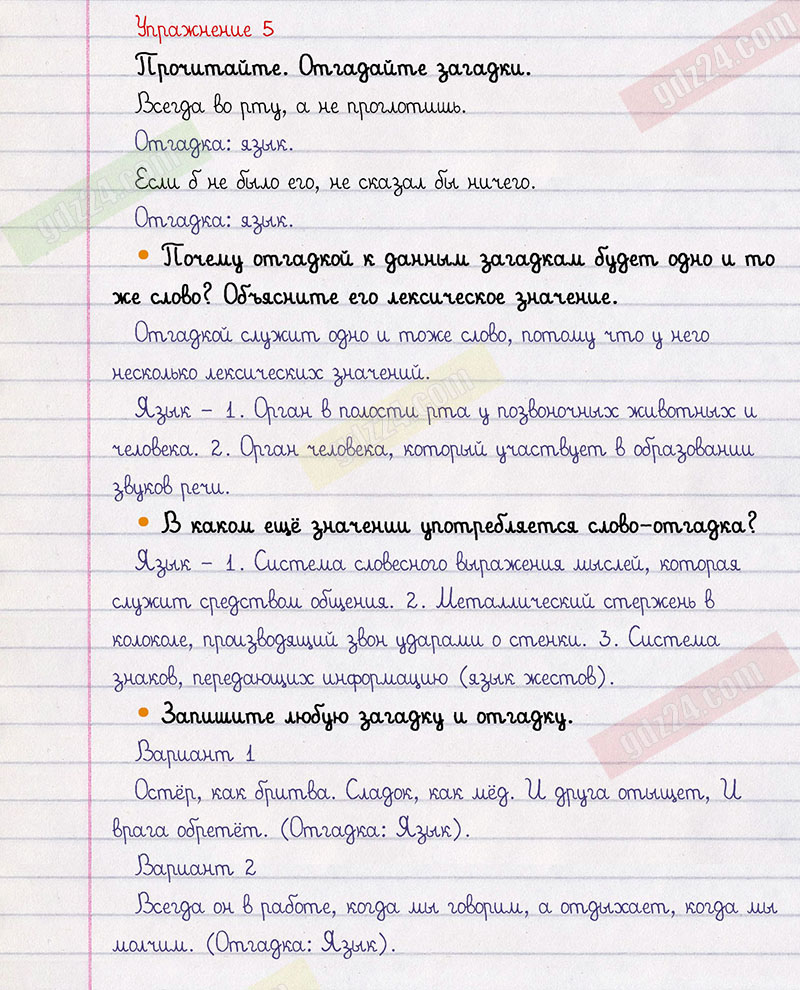 Упражнение 5
Прочитайте. Отгадайте загадки.
Всегда во рту, а не проглотишь.
Отгадка: язык.
Если б не было его, не сказал бы ничего.
Отгадка: язык.
• Почему отгадкой к данным загадкам будет одно и то
же слово? Объясните его лексическое значение.
Отгадкой служит одно и тоже слово, потому что у него
несколько лексических значений.
Язык – 1. Орган в полости рта у позвоночных животных и
человека. 2. Орган человека, который участвует в образовании
звуков речи.
• В каком ещё значении употребляется слово-отгадка?
Язык – 1. Система словесного выражения мыслей, которая
служит средством общения. 2. Металлический стержень в
колоколе, производящий звон ударами о стенки. 3. Система
знаков, передающих информацию (язык жестов).
• Запишите любую загадку и отгадку.
Вариант 1
Остёр, как бритва. Сладок, как мёд. И друга отыщет, И
врага обретёт. (Отгадка: Язык).
Вариант 2
Всегда он в работе, когда мы говорим, а отдыхает, когда мы
молчим. (Отгадка: Язык).
gdz24.com
gdz24.com
gdz24.com
gdz24.com